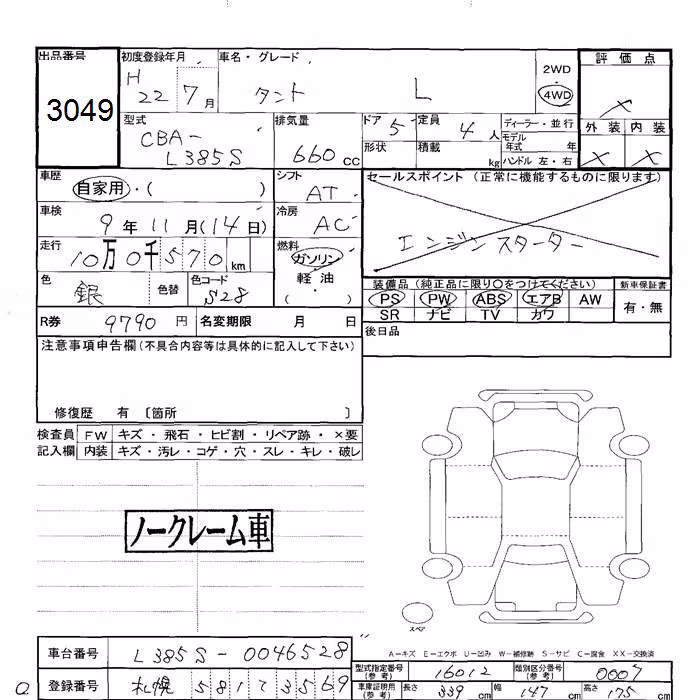 出品番号 初度登録年月 車名・グレード 2WD 評価点
3049 H 22 7月 タント L 4WD ×
型式 排気量 ドア 5 定員 4人 ディーラー・並行 外装 内装
CBA- L385S 660cc 形状 積載 kg モデル年式 年 ハンドル 左・右 × ×
車歴 自家用・( ) シフト AT セールスポイント (正常に機能するものに限ります)
車検 9年11月(14日) 冷房 AC エンジンスターター
走行 10万0千570km 燃料 ガソリン 軽油・( )
色 銀 色替 色コード S28 装備品(純正品に限り○をつけてください) 新車保証書
PS PW ABS エアB AW 有・無
SR ナビ TV カワ
R券 9790円 名変期限 月 日 後日品
注意事項申告欄(不具合内容等は具体的に記入して下さい)
修復歴 有 〔箇所 〕
検査員 FW キズ・飛石・ヒビ割・リペア跡・×要
記入欄 内装 キズ・汚レ・コゲ・穴・スレ・キレ・破レ
ノークレーム車
スペア
A-キズ E-エクボ U-凹み W-補修跡 S-サビ C-腐食 XX-交換済
車台番号 L385S-0046528 型式指定番号(参考) 16012 類別区分番号(参考) 0007
登録番号 札幌 581 ｱ 3569 車庫証明用(参考) 長さ 339cm 幅 147cm 高さ 175cm